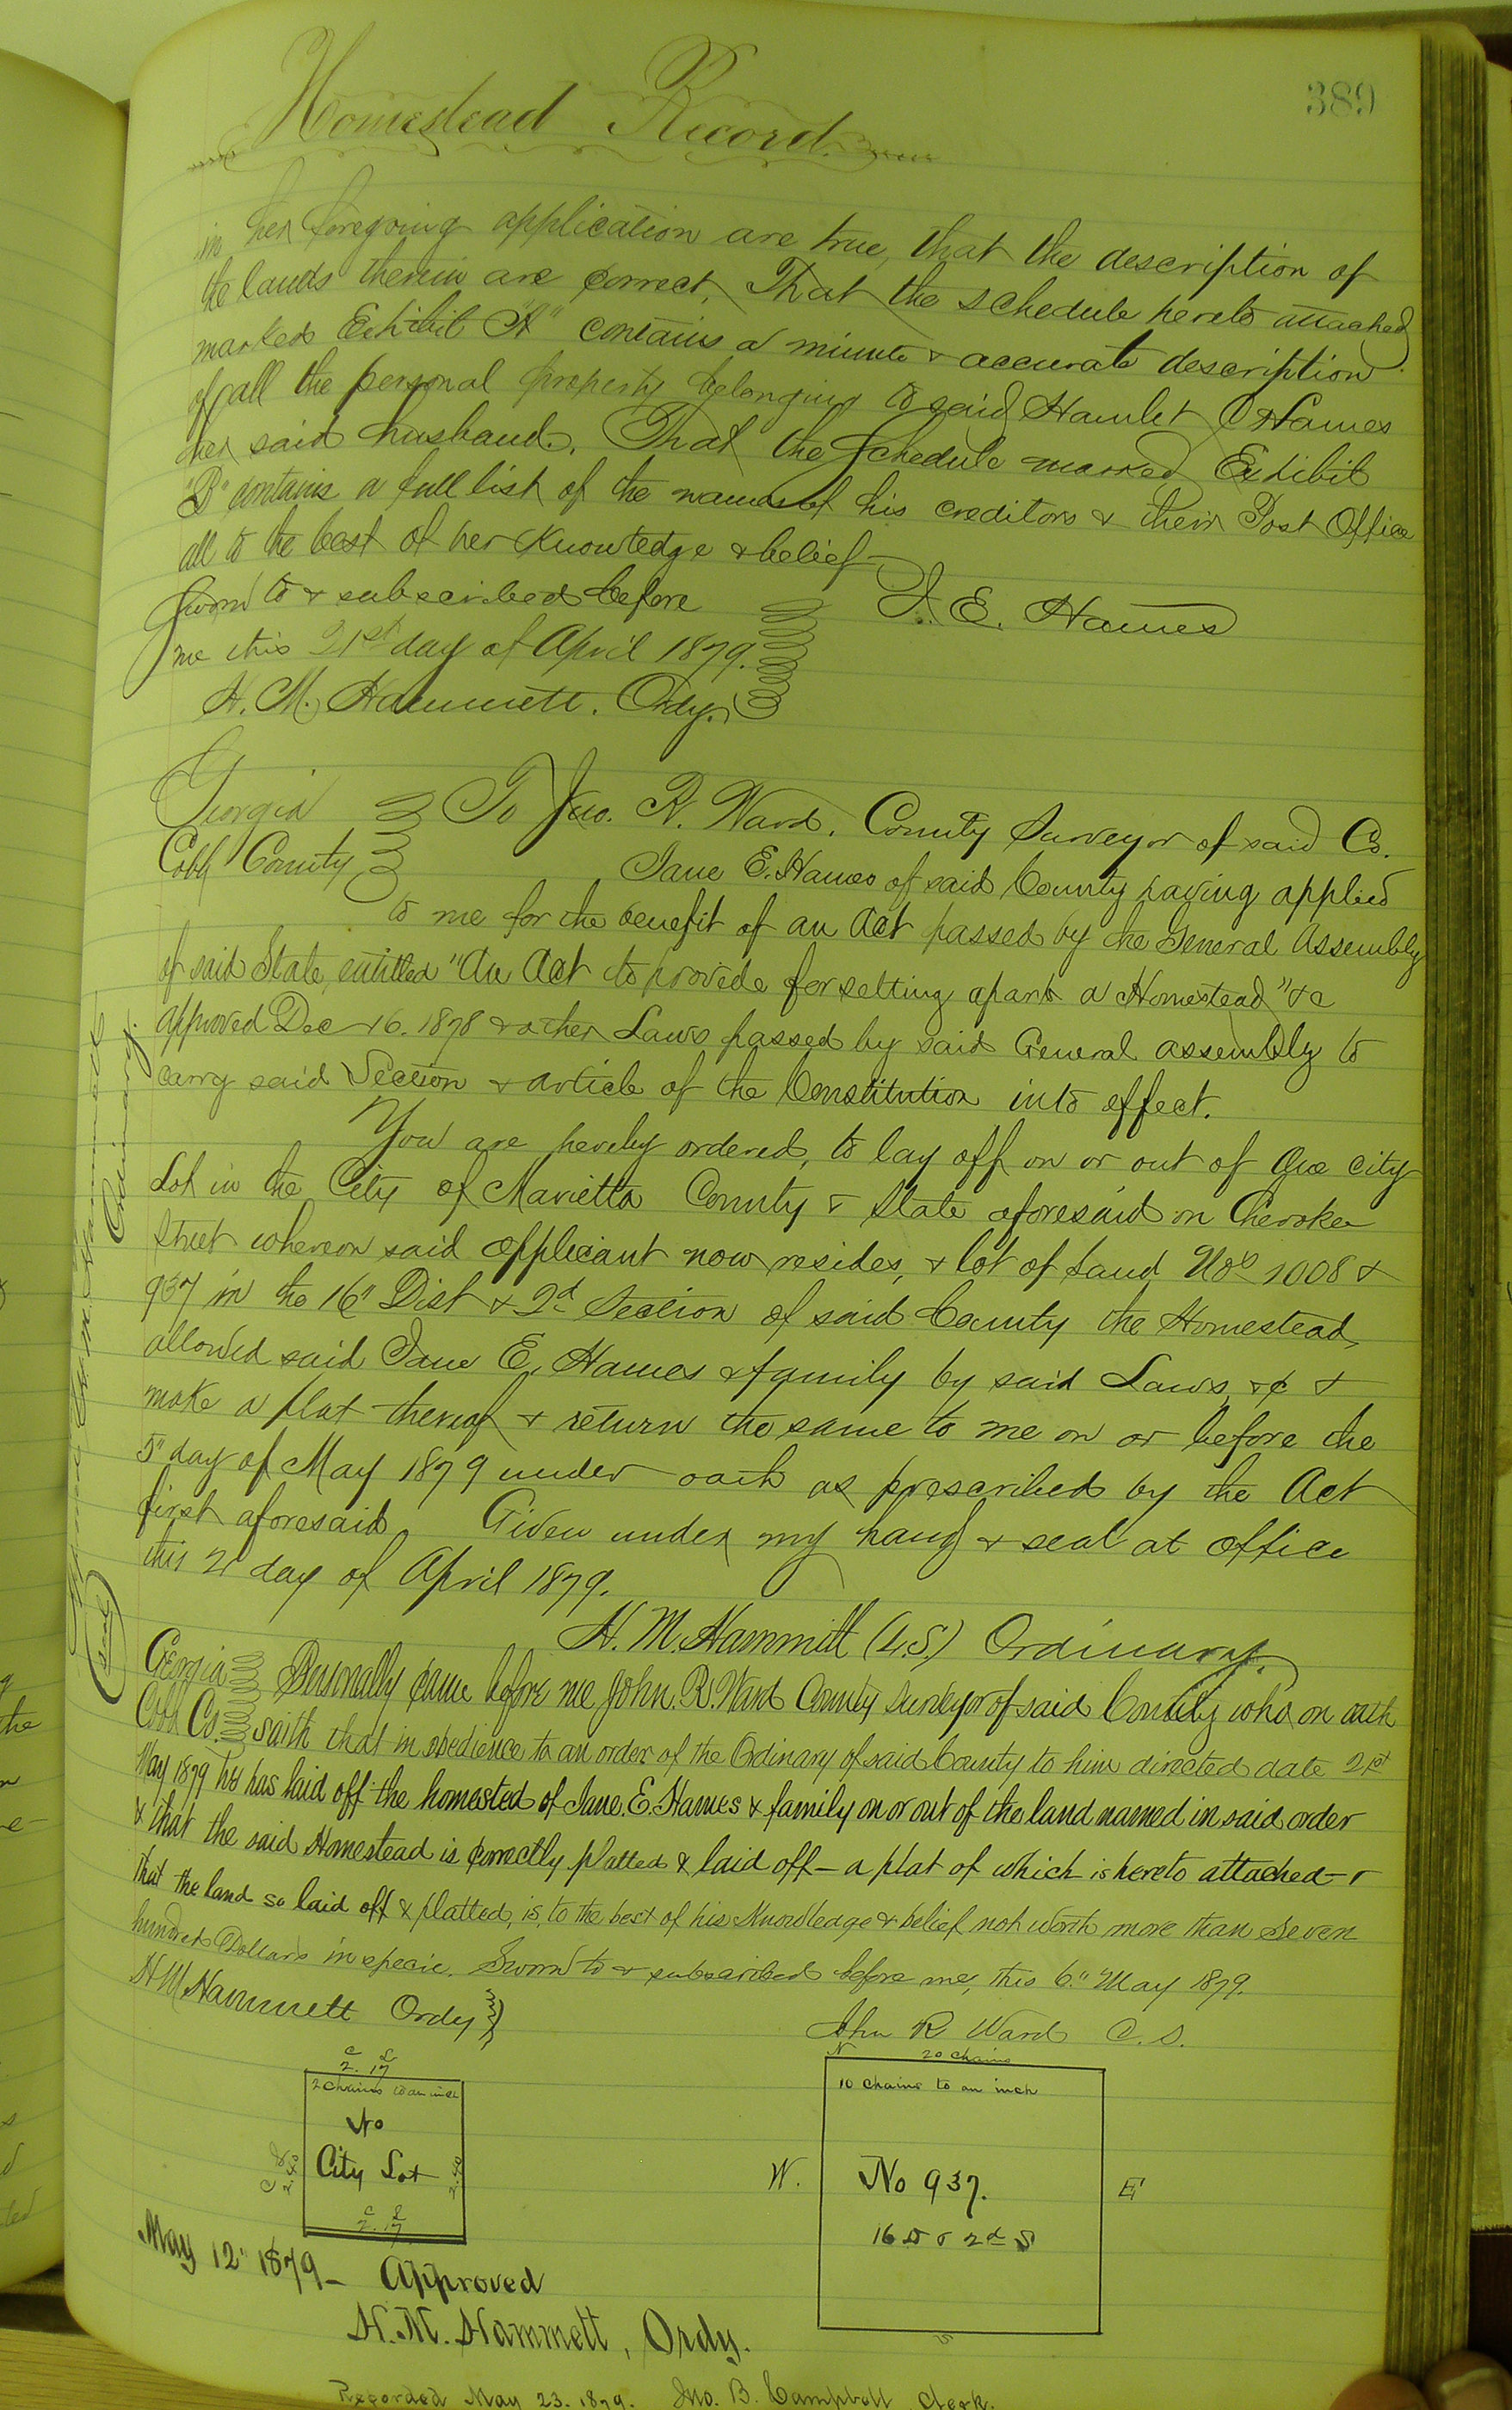 389
Homestead Record
in her foregoing application are true, that the description of
the lands therein are correct, That the schedule hereto attached
marked Exhibit "A" contains a minute & accurate description
of all the personal property belonging to said Hamlet Hames
her said husband. That the Schedule marked Exhibit
"B" contains a full list of the names of his creditors & their Post Office
all to the best of her Knowledge & belief
Sworn to & subscribed before
J. E. Hames
me this 21st day of April 1879.
H. M. Hammett. Ordy.
Georgia To Jno. R. Ward. County Surveyor of said Co.
Cobb County Jane E. Hames of said County having applied
to me for the benefit of an Act passed by the General Assembly
of said State, entitled "An Act to provide for setting apart a Homestead" &c
approved Dec 16. 1878 & other Laws passed by said General assembly to
carry said Section & article of the Constitution into effect.
You are hereby ordered, to lay off on or out of One City
Lot in the City of Marietta County & State aforesaid on Cherokee
Street whereon said applicant now resides, & lot of Land Nos 1008 &
937 in the 16" Dist & 2d Section of said County the Homestead,
allowed said Jane E. Hames & family by said Laws, &c &
make a plat thereof & return the same to me on or before the
5" day of May 1879 under oath as prescribed by the Act
first aforesaid Given under my hand & seal at office
this 21 day of April 1879.
H. M. Hammett (L.S.) Ordinary.
Georgia Personally came before me John. R. Ward County Surveyor of said County who on oath
Cobb Co. saith that in obedience to an order of the Ordinary of said County to him directed date 21st
May 1879 he has laid off the homested of Jane. E. Hames & family on or out of the land named in said order
& that the said Homestead is correctly platted & laid off — a plat of which is hereto attached—&
that the land so laid off & platted, is, to the best of his Knowledge & belief not worth more than seven
hundred Dollars in specie. Sworn to & subscribed before me, this 6." May 1879.
H M Hammett Ordy
John R Ward C. S.
C L
2. 17
2 chains to an inch
No
City Lot
C L
2. 50
2.50
C L
2. 17
N 20 chains
10 chains to an inch
W.
No 937.
E
16 D & 2d S
S
May 12" 1879 — Approved
H. M. Hammett, Ordy.
Recorded May 23. 1879. Jno. B. Campbell Clerk.
Ordinary.
(Seal)